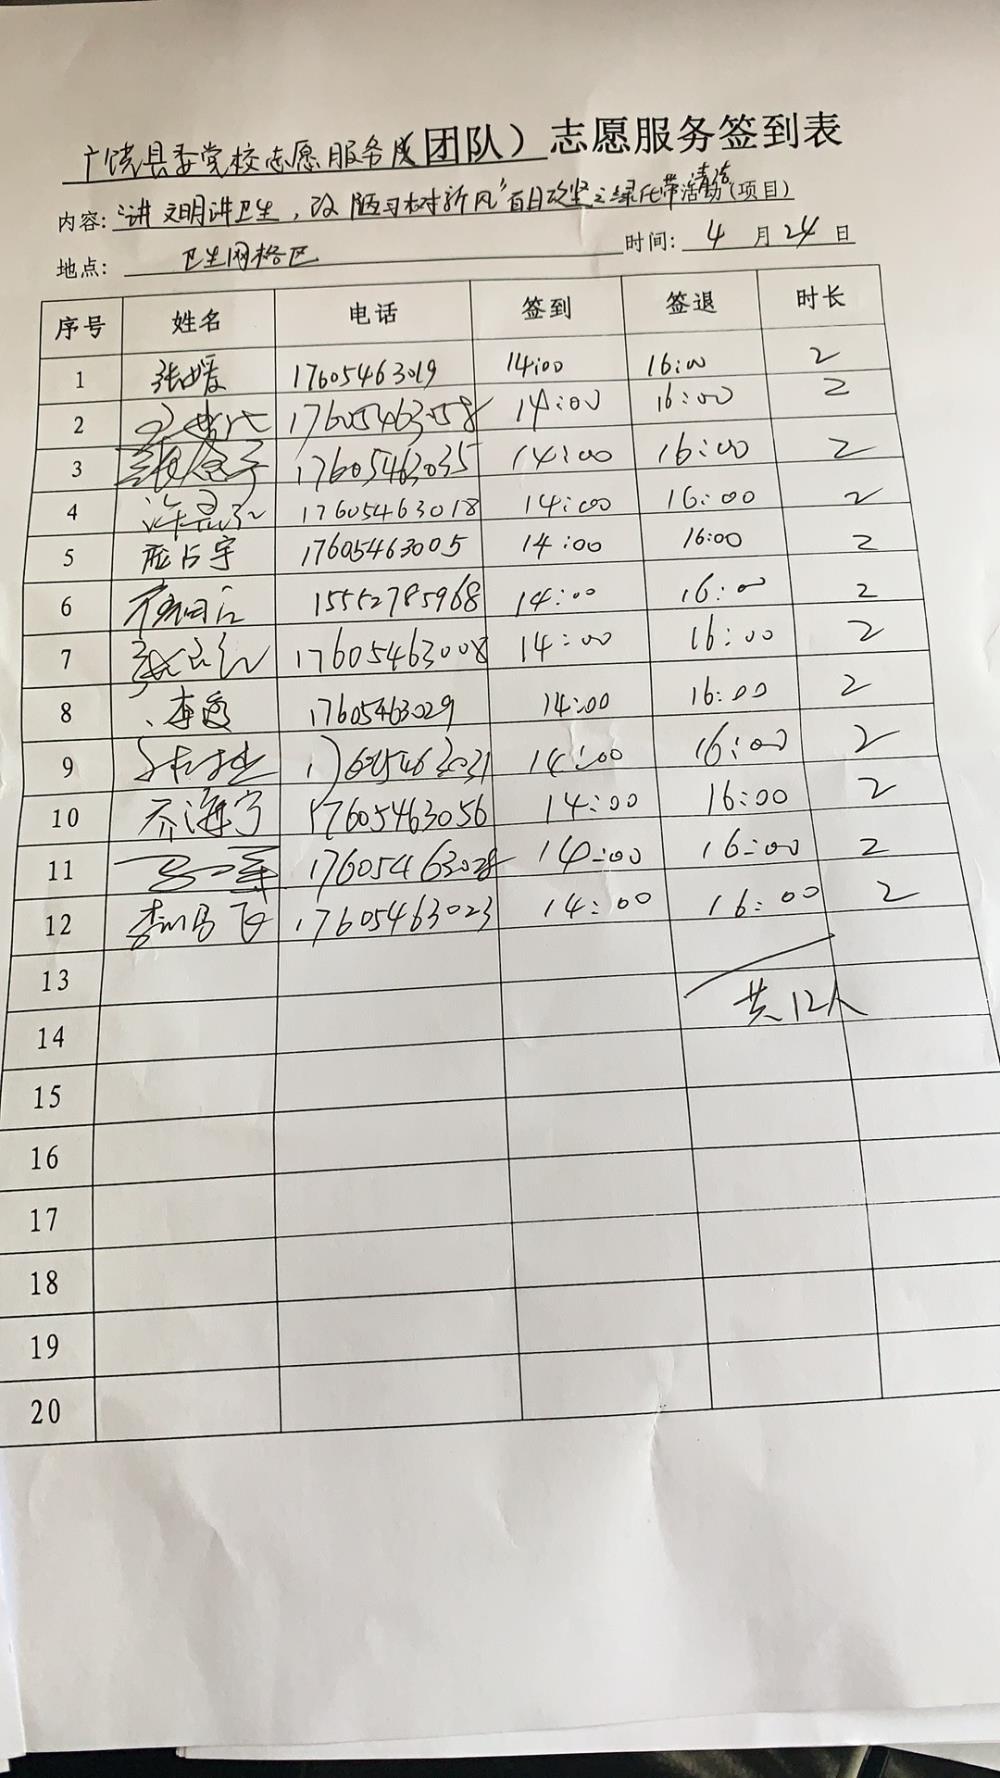 广饶县委党校志愿服务队(团队)志愿服务签到表
内容: "讲文明讲卫生,改陋习树新风"百日攻坚之绿化带清洁活动(项目)
地点: 卫生网格区 时间: 4月24日
序号 姓名 电话 签到 签退 时长
1 张媛 17605463019 14:00 16:00 2
2 17605463058 14:00 16:00 2
3 17605463035 14:00 16:00 2
4 17605463018 14:00 16:00 2
5 17605463005 14:00 16:00 2
6 15552785968 14:00 16:00 2
7 17605463008 14:00 16:00 2
8 17605463029 14:00 16:00 2
9 17605463031 14:00 16:00 2
10 乔海宁 17605463056 14:00 16:00 2
11 17605463028 14:00 16:00 2
12 17605463023 14:00 16:00 2
13
共12人
14
15
16
17
18
19
20